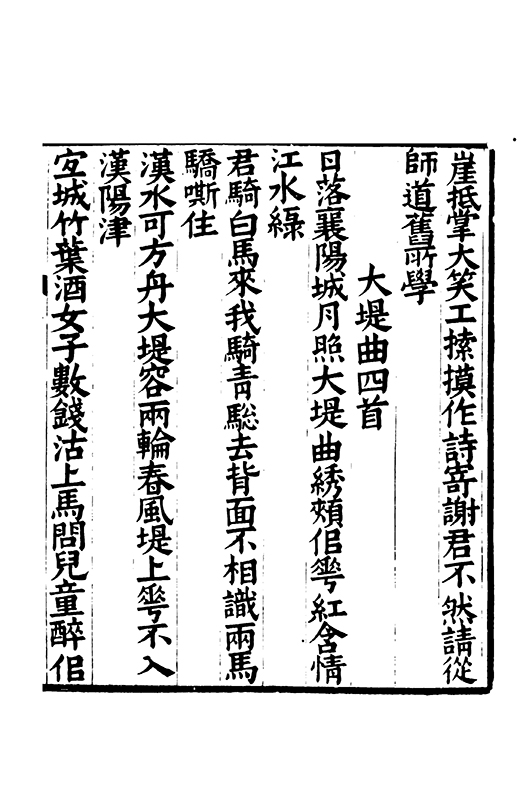 崖抵掌大笑工㨞摸作詩寄謝君不然請從
師道舊所學
大堤曲四首
日落襄陽城月照大堤曲綉頰佀蕚紅含情
江水綠
君騎白馬來我騎青騘去背面不相識兩馬
驕嘶住
漢水可方舟大堤容兩輪春風堤上蕚不入
漢陽津
宐城竹葉酒女子數錢沽上馬問兒童醉佀